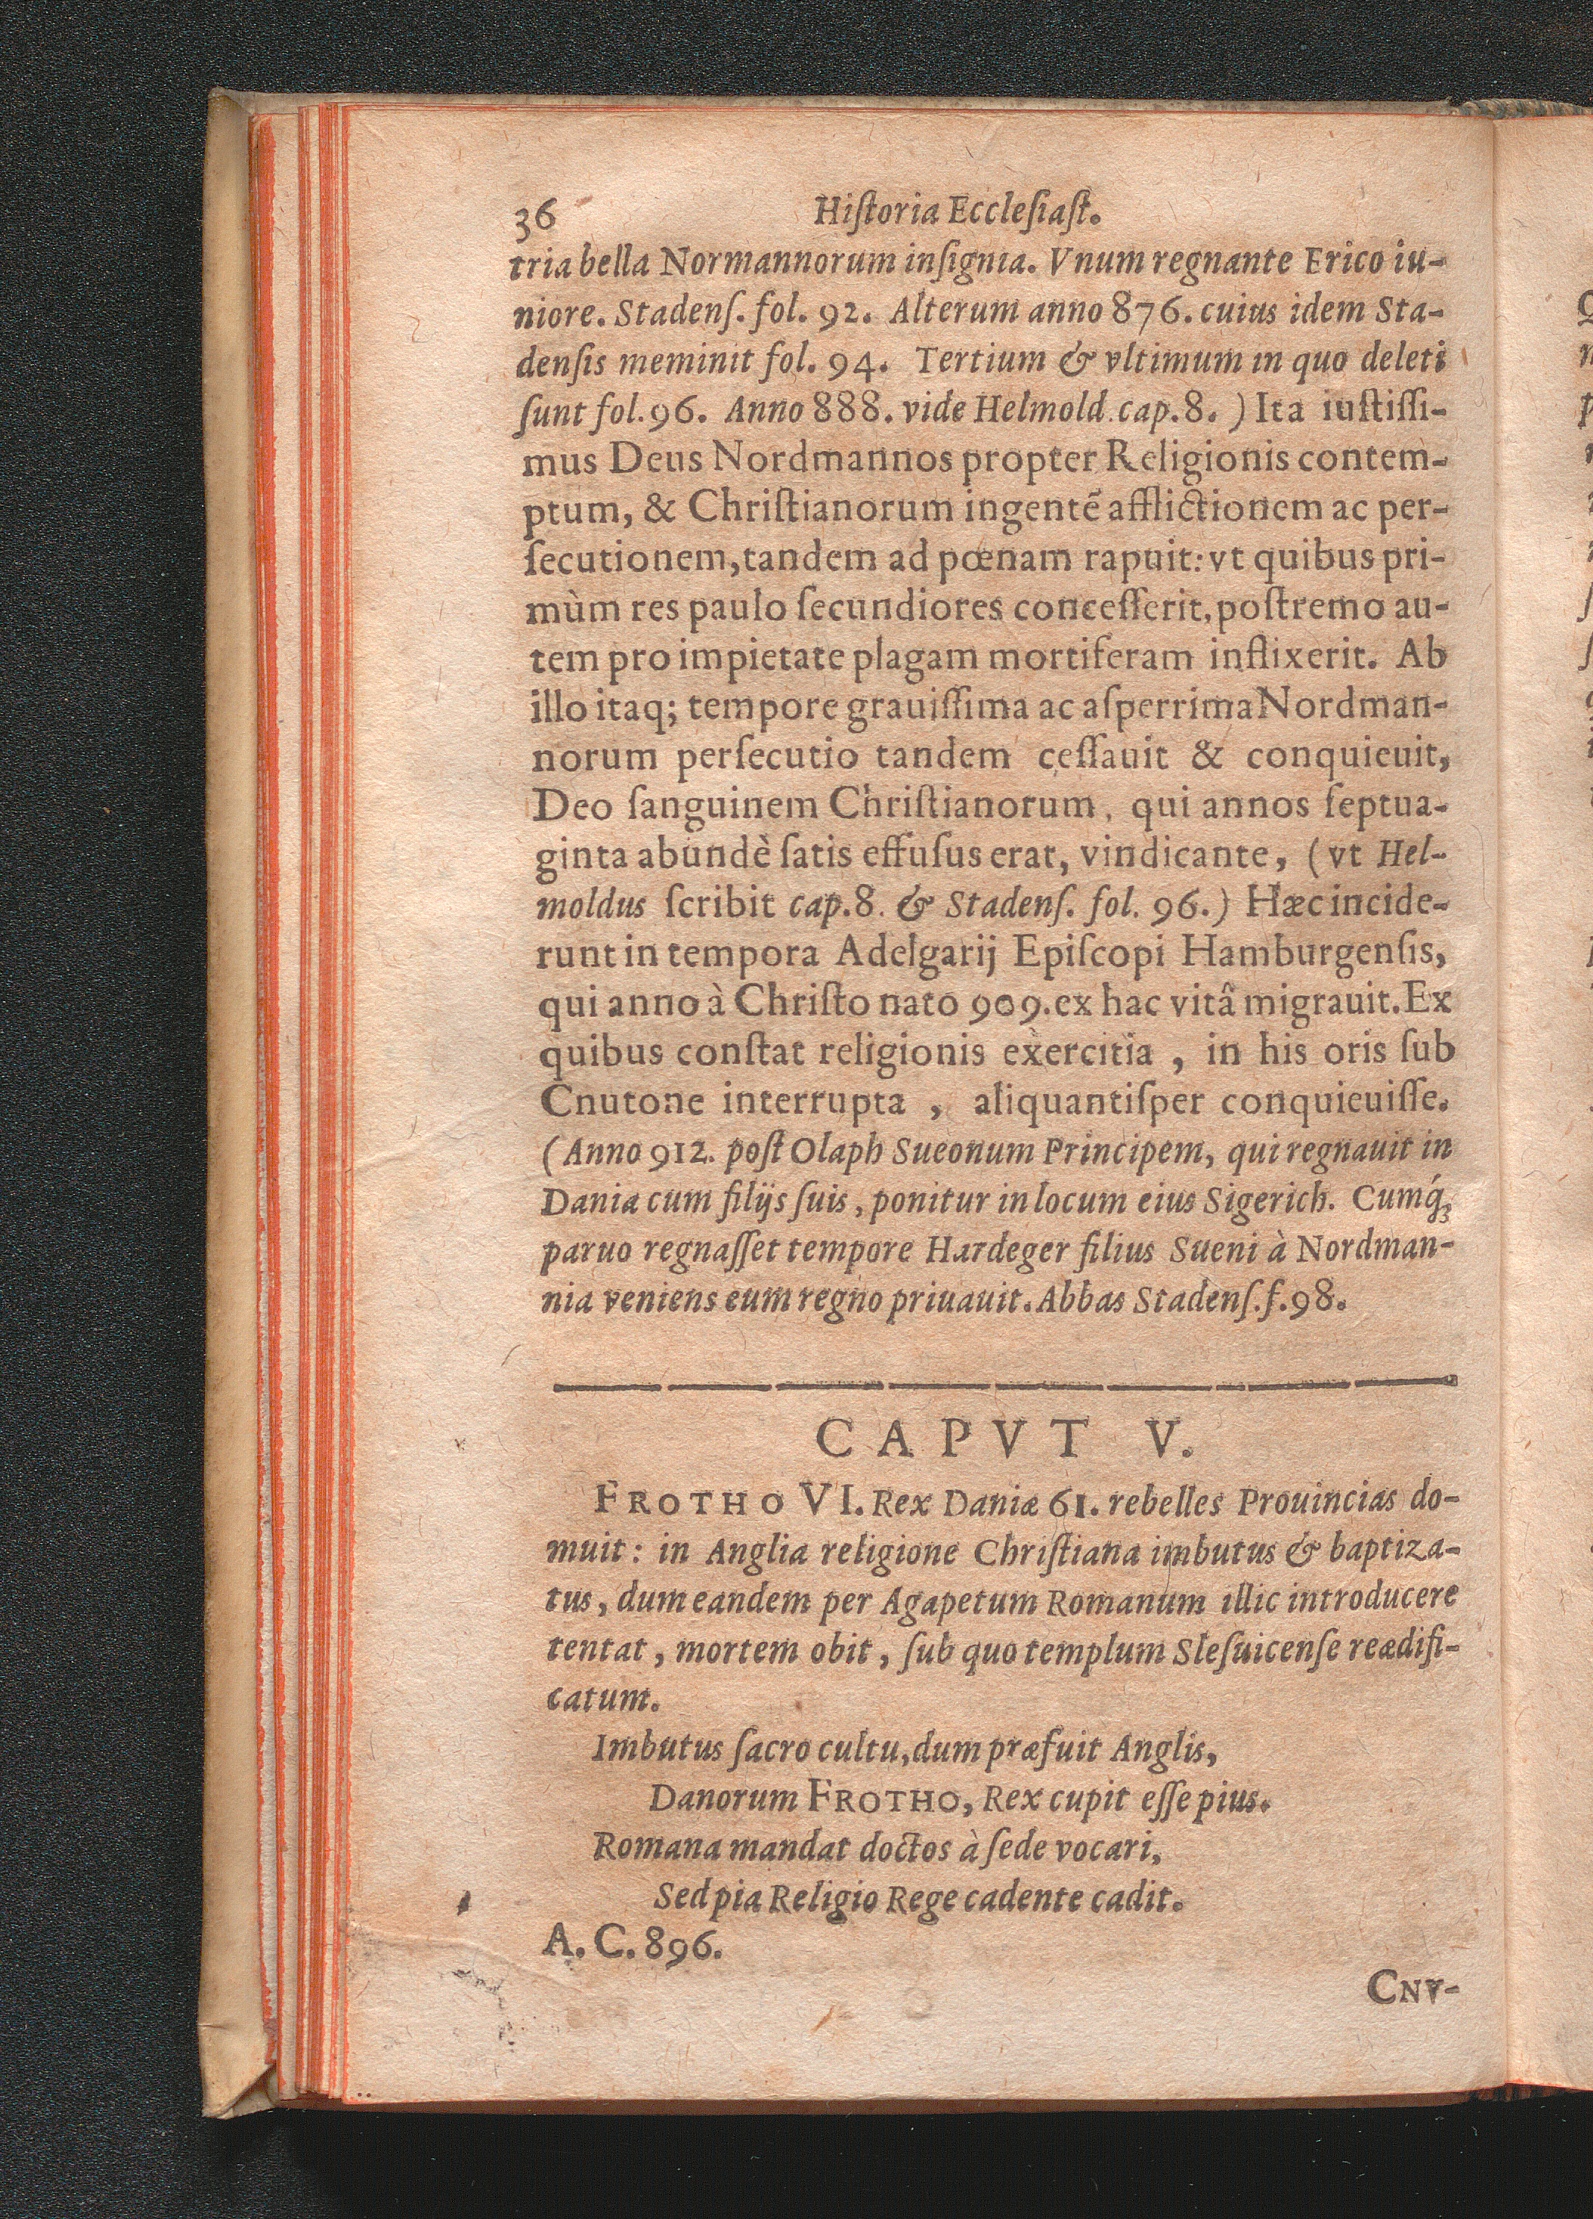 36 Hiſtoria Eccleſiaſt.
tria bella Normannorum inſignia. Vnum regnante Erico iu-
niore. Stadenſ. fol. 92. Alterum anno 876. cuius idem Sta-
denſis meminit fol. 94. Tertium & vltimum in quo deleti
ſunt fol. 96. Anno 888. vide Helmold. cap. 8. ) Ita iuſtiſſi-
mus Deus Nordmannos propter Religionis contem-
ptum, & Chriſtianorum ingentẽ afflictionem ac per-
ſecutionem, tandem ad pœnam rapuit: vt quibus pri-
mùm res paulo ſecundiores conceſſerit, poſtremo au-
tem pro impietate plagam mortiferam inflixerit. Ab
illo itaq; tempore grauiſſima ac aſperrima Nordman-
norum perſecutio tandem ceſſauit & conquieuit,
Deo ſanguinem Chriſtianorum, qui annos ſeptua-
ginta abundè ſatis effuſus erat, vindicante, ( vt Hel-
moldus ſcribit cap. 8. & Stadenſ. fol. 96.) Hæc incide-
runt in tempora Adelgarij Epiſcopi Hamburgenſis,
qui anno à Chriſto nato 909. ex hac vitâ migrauit. Ex
quibus conſtat religionis exercitia , in his oris ſub
Cnutone interrupta , aliquantiſper conquieuiſſe.
( Anno 912. poſt Olaph Sueonum Principem, qui regnauit in
Dania cum filijs ſuis, ponitur in locum eius Sigerich. Cumq́ꝫ
paruo regnaſſet tempore Hardeger filius Sueni à Nordman-
nia veniens eum regno priuauit. Abbas Stadenſ. f. 98.
CAPVT V.
FROTHO VI. Rex Daniæ 61. rebelles Prouincias do-
muit: in Anglia religione Chriſtiana imbutus & baptiza-
tus, dum eandem per Agapetum Romanum illic introducere
tentat, mortem obit, ſub quo templum Sleſuicenſe reædifi-
catum.
Imbutus ſacro cultu, dum præfuit Anglis,
Danorum FROTHO, Rex cupit eſſe pius.
Romana mandat doctos à ſede vocari,
Sed pia Religio Rege cadente cadit.
A. C. 896.
CNV-